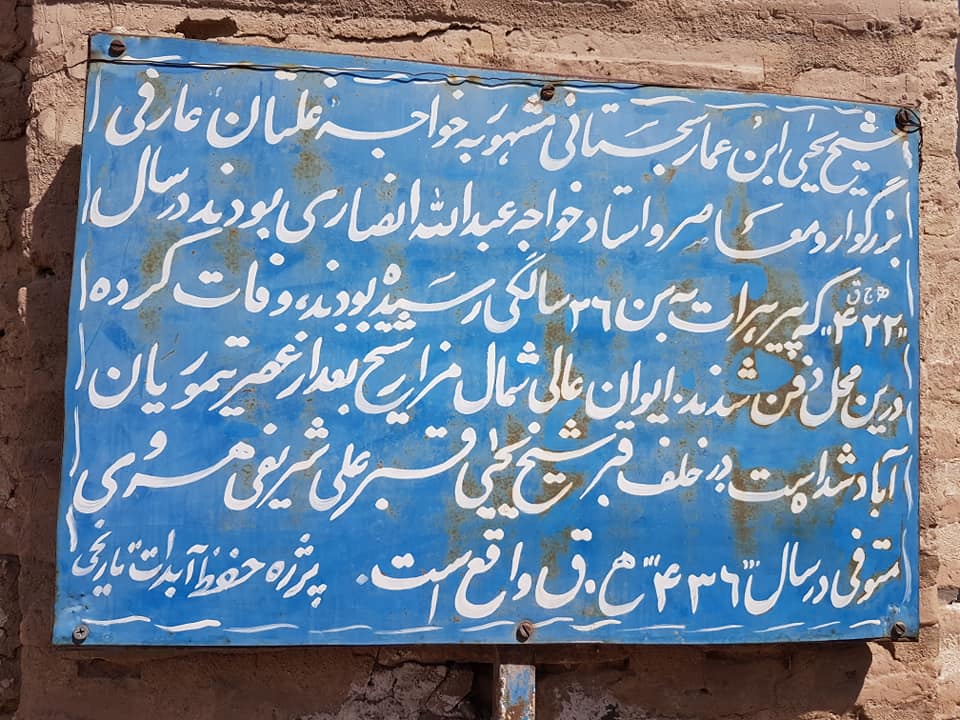 شیخ یحیی ابن عمار سجستانی مشهور به خواجه غلتان عارفی
بزرگوار و معاصر و استاد خواجه عبدالله انصاری بودند در سال
"۴۲۲" هج ق که پیر هرات به سن ۲۶ سالگی رسیده بودند، وفات کرده
درین محل دفن شدند. ایوان عالی شمال مزار شیخ بعد از عصر تیموریان
آباد شده است در خلف قبر شیخ یحیی قبر علی شریفی هروی
متوفی در سال "۴۳۶" هج. ق واقع است. پرژه حفظ آبدات تاریخی